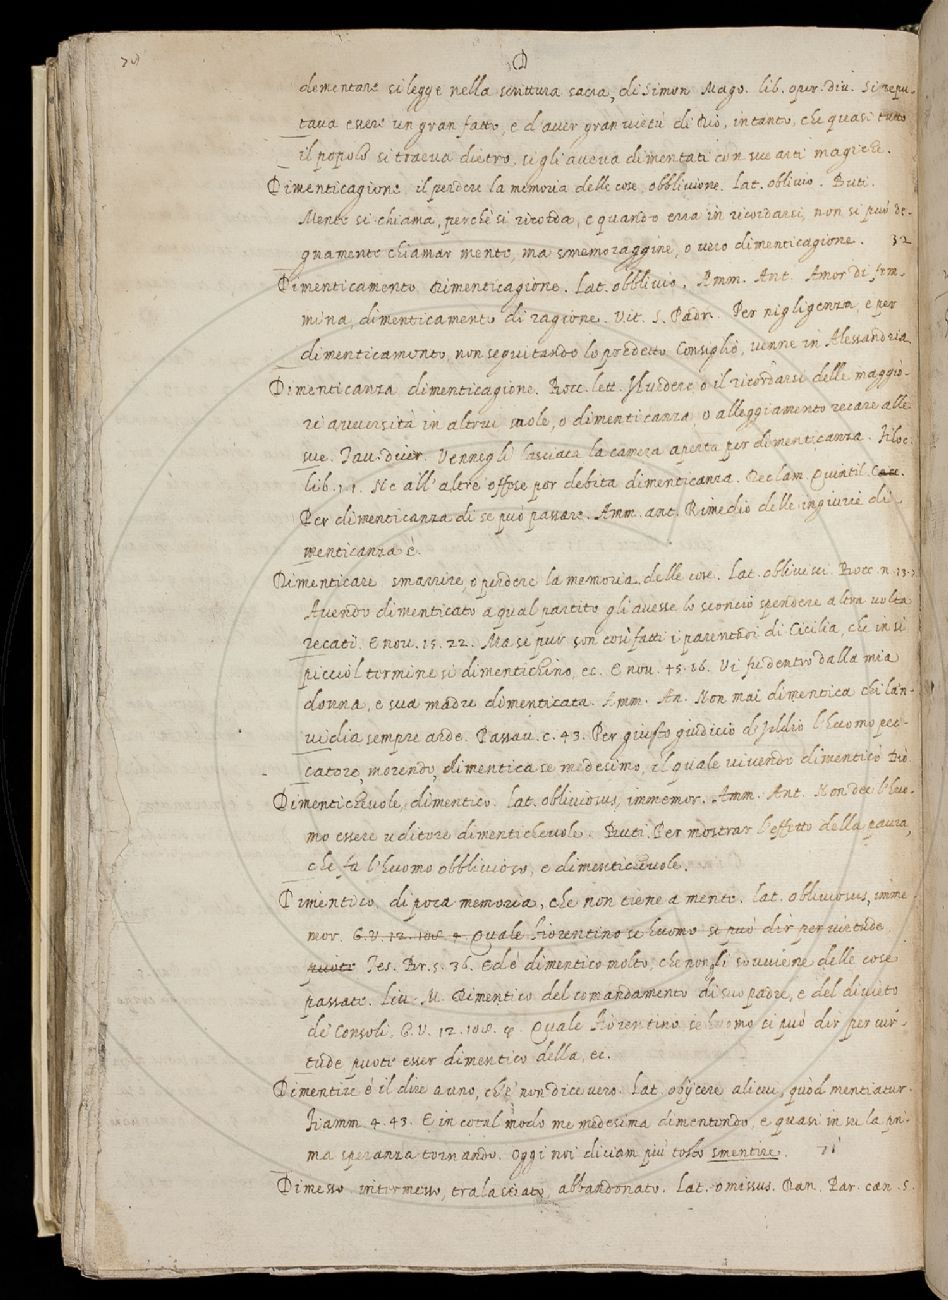 D
dementare si legge nella scrittura sacra, di Simon Mago. lib. oper. diu. Si repu-
taua essere un gran fatto, e d'auer gran uirtù di Dio, intanto, che quasi tutto
il popolo si traeua dietro, si gli aueua dimentati con sue arti magiche.
Dimenticagione, il perdere la memoria delle cose, obbliuione. Lat. obliuio. Buti.
Mente si chiama, perchè si ricorda, e quando erra in ricordarsi, non si può de-
gnamente chiamar mente, ma smemoraggine, o uero dimenticagione. 32
Dimenticamento dimenticagione. Lat. obbliuio. Amm. Ant. Amor di fem-
mina, dimenticamento di ragione. Vit. S. Padr. Per nigligenza, e per
dimenticamento, non seguitando lo predetto Consiglio, uenne in Alessandria
Dimenticanza dimenticagione. Bocc. lett. il ricordarsi delle maggio-
ri auuersità in altrui suole, o dimenticanza, o alleggiamento recare alle
sue. Tau. Vennegli lasciata la camera aperta per dimenticanza. Filoc.
lib. Ne all'altre offese por debita dimenticanza. Declam. Quintil.
Per dimenticanza di se può passare. Amm. ant. Rimedio delle ingiurie di-
menticanza è.
Dimenticare smarrire, o perdere la memoria delle cose. Lat. obliuisci. Bocc. n. 13.
Auendo dimenticato a qual partito gli auesse lo sconcio spendere altra uolta
recati. E nou. 15. 22. Ma se pur son così fatti i parentadi di Cicilia, che in sì
picciol termine si dimentichino, ec. E nou. 45. 16. Vi fu dentro dalla mia
donna, e sua madre dimenticata. Amm. An. Non mai dimentica chi l'an-
uidia sempre arde. Passau. c. 43. Per giusto giudicio d'Iddio l'huomo pec-
catore, morendo, dimentica se medesimo, il quale uiuendo dimenticò Dio
Dimenticheuole, dimentico. lat. obliuiosus, immemor. Amm. Ant. Non dee l'huo-
mo essere uditore dimenticheuole. Buti. Per mostrar l'effetto della paura,
che fa l'huomo obbliuioso, e dimenticheuole.
Dimentico di poca memoria, che non tiene a mente. lat. obliuiosus, imme-
mor. G. V. 12. 108. 4. Quale fiorentino se huomo si può dir per uirtude,
puote Tes. Br. 5. 36. Ed è dimentico molto, che non gli souuiene delle cose
passate. Liu. M. Dimentico del comandamento di suo padre, e del diuieto
de' Consoli. G. V. 12. 108. 4. Quale fiorentino se huomo ci può dir per uir-
tude puote esser dimentico della, ec.
Dimentire è il dire a uno, ch'e' non dice uero. Lat. obijcere alicui, quòd mentiatur.
Fiamm. 4. 43. E in cotal modo me medesima dimentendo, e quasi in su la pri-
ma speranza tornando. Oggi noi diciam più tosto smentire.
Dimesso intermesso, tralasciato, abbandonato. Lat. omissus. Dan. Par. can. 5.